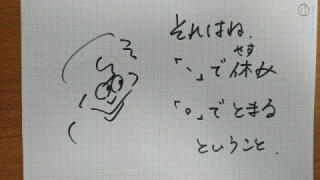 それはね.
「、」で休み
やす
「。」でとまる
ということ.